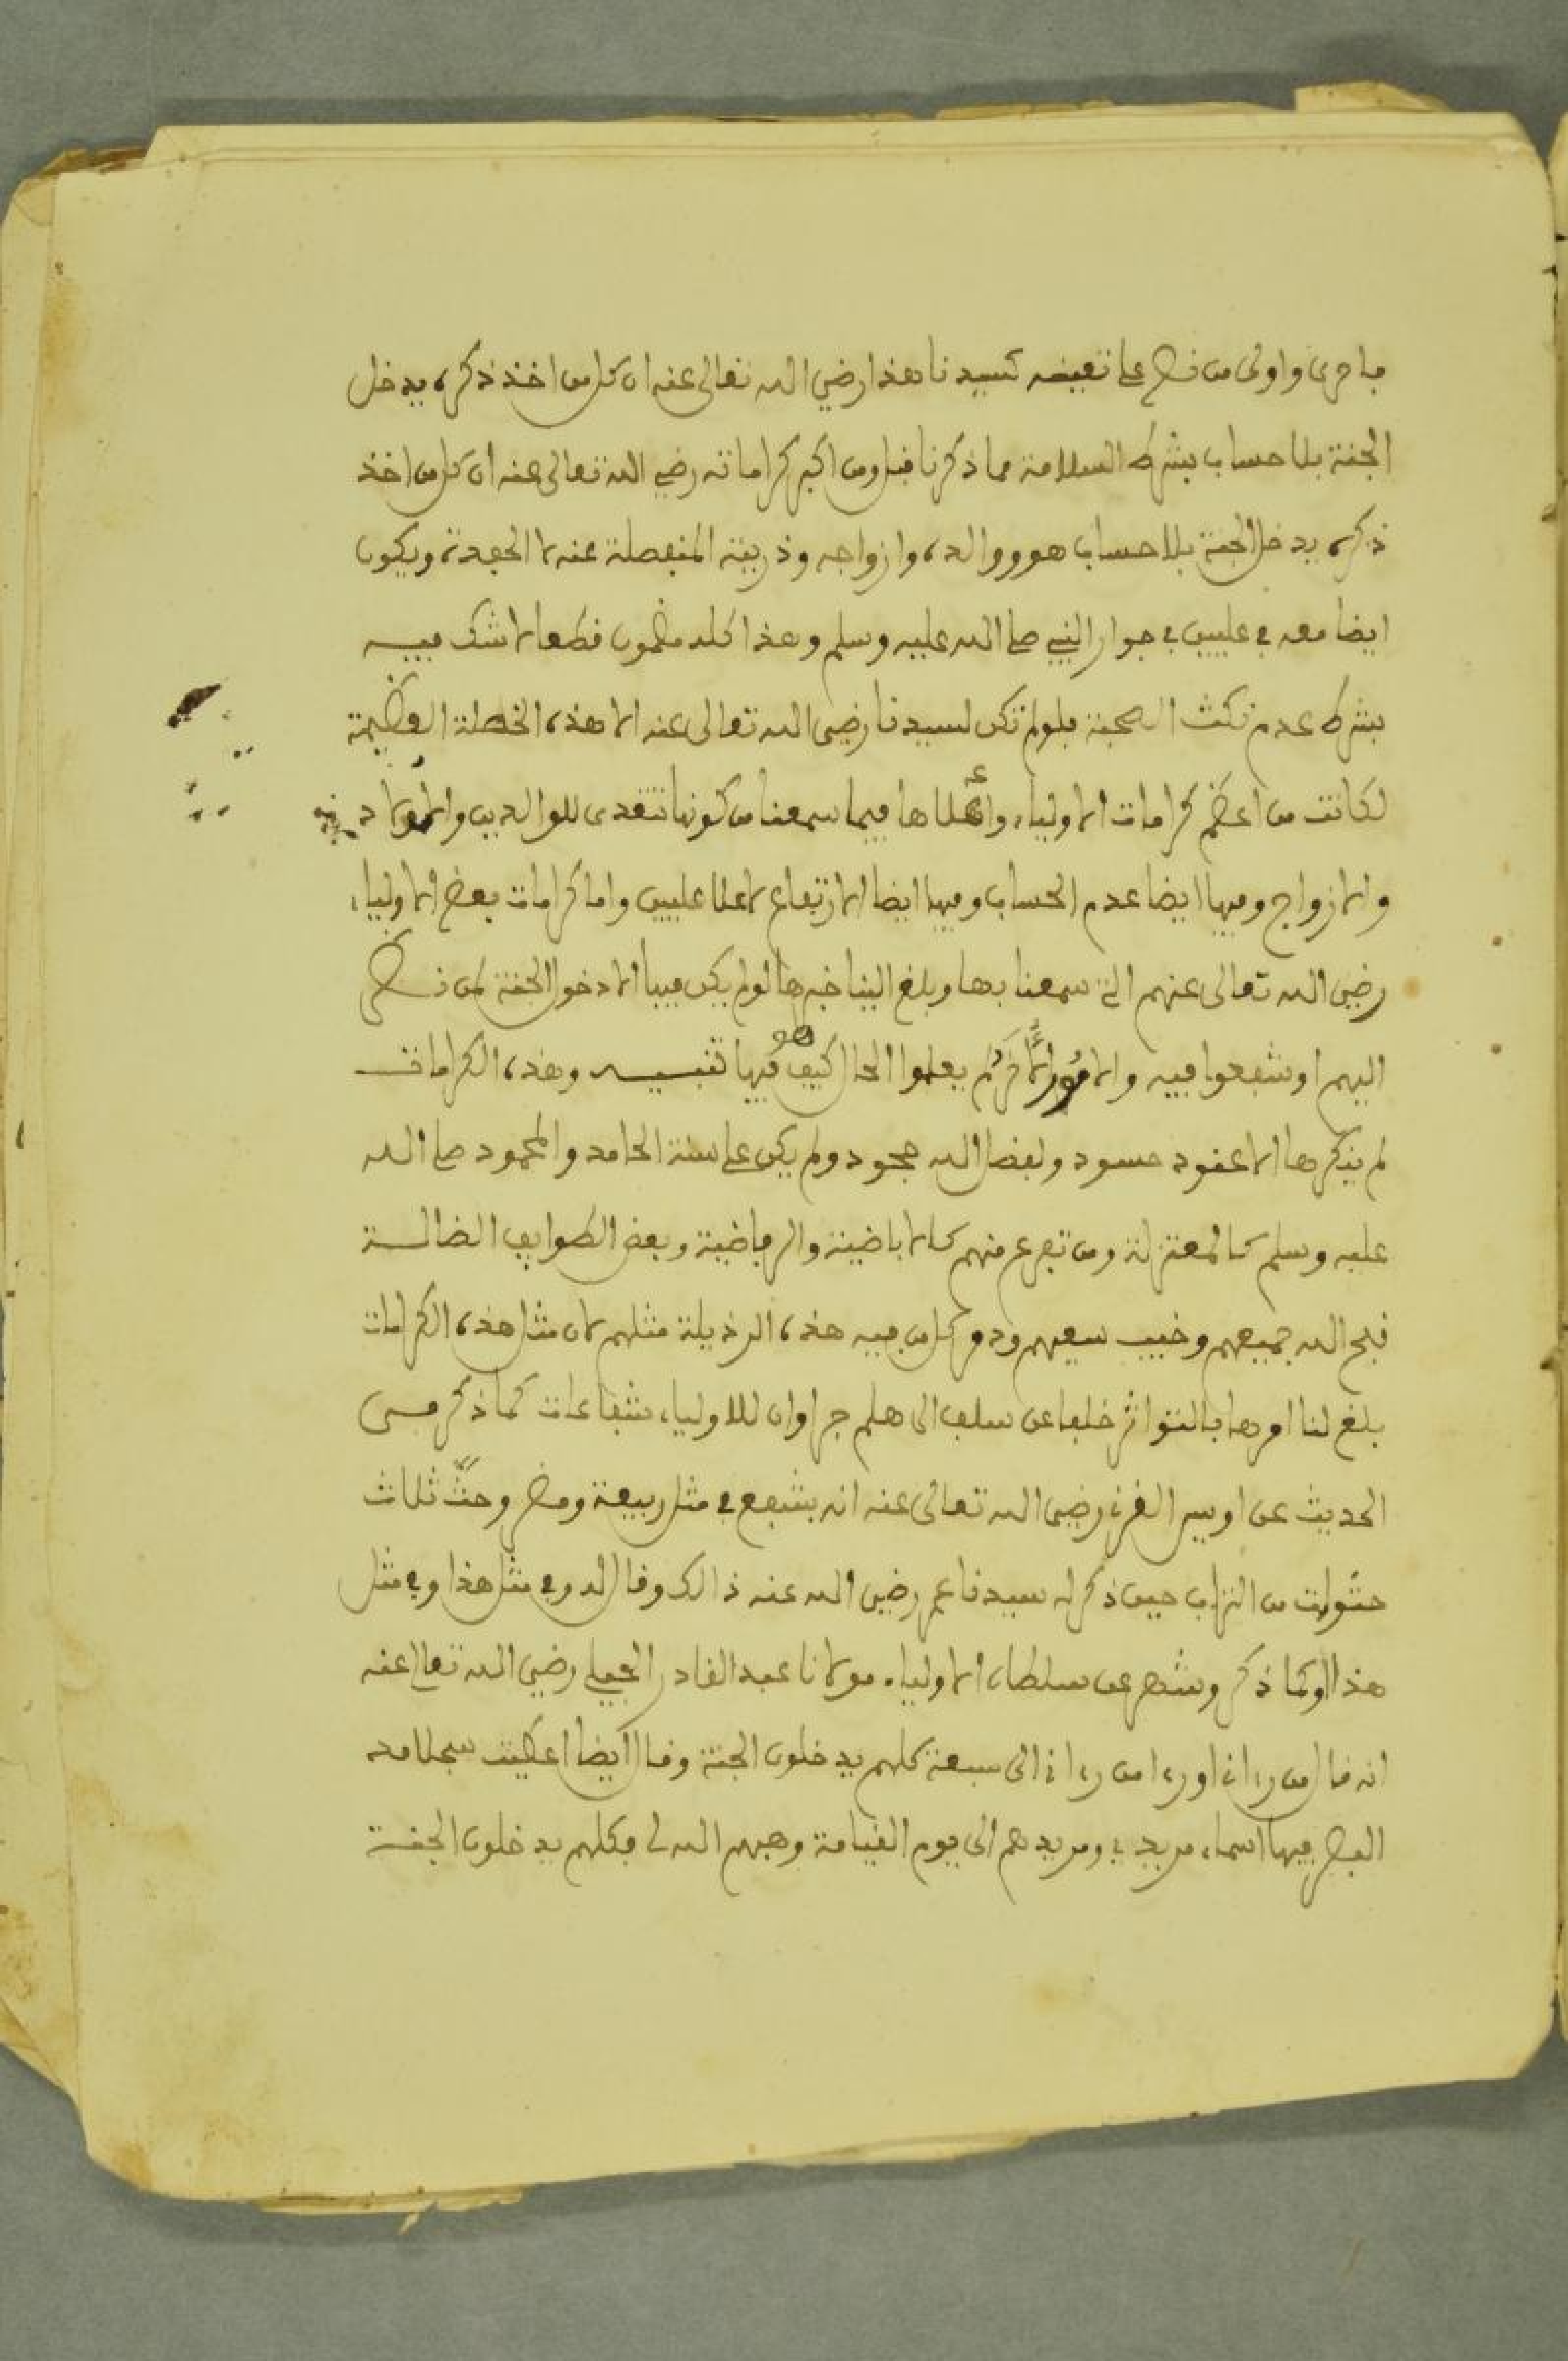 باحرى واولى من نص على تعيينه كسيدنا هذا رضي الله تعالى عنه ان كل من اخذ ذكره يدخل
الجنة بلا حساب بشرط السلامة مما ذكرنا قبل ومن اكبر كراماته رضي الله تعالى عنه ان كل من اخذ
ذكره يدخل الجنة بلا حساب هو ووالده وازواجه وذريته المنفصلة عنه لا الحفدة ويكون
ايضا معه في عليين في جوار النبي صلى الله عليه وسلم وهذا كله مضمون قطعا لا شك فيه
بشرط عدم نكث الصحبة فلو لم تكن لسيدنا رضي الله تعالى عنه الا هذه الخصلة العظيمة
لكانت من اعظم كرامات الاولياء واعلاها فيما سمعنا من كونها تتعدى للوالدين والاولاد
والازواج وفيها ايضا عدم الحساب وفيها ايضا الارتفاع لاعلا عليين واما كرامات بعض الاولياء
رضي الله تعالى عنهم التي سمعنا بها وبلغ الينا خبرها لو لم يكن فيها الا دخول الجنة لمن نظر
اليهم او شفعوا فيه يعلموا الحال كيف هو فيها تنبيه وهذه الكرامات
لم ينكرها الا عنود حسود ولفضل الله جحود ولم يكن على سنة الحامد والمحمود صلى الله
عليه وسلم كالمعتزلة ومن تفرع منهم كالاباضية والرباضية وبعض الطوايف الضالة
قبح الله جميعهم وخيب سعيهم ودمر كل من فيه هذه الرذيلة مثلهم لان مثل هذه الكرامات
بلغ لنا امرها بالتواتر خلفا عن سلف الى هلم جرا وان للاولياء شفاعات كما ذكر في
الحديث عن اويس القرني رضي الله تعالى عنه انه يشفع في مثل ربيعة ومضر وحثّ ثلاث
حثوات من التراب حين ذكر له سيدنا عمر رضي الله عنه ذالك وقال له وفي مثل هذا وفي مثل
هذا او كما ذكر وشهر عن سلطان الاولياء مولانا عبد القادر الجيلي رضي الله تعالى عنه
انه قال من رءاني او رءا من رءاني الى سبعة كلهم يدخلون الجنة وقال ايضا اعطيت سجلا مد
البصر فيها اسماء مريدي ومريدهم الى يوم القيامة وهبهم الله لي فكلهم يدخلون الجنة